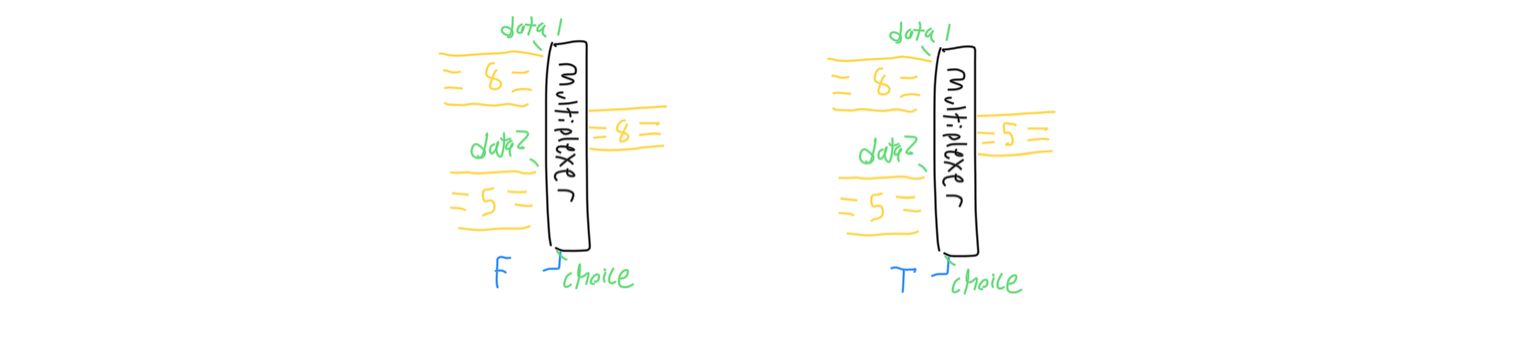 data 1
8
Multiplexer
8
data2
5
F
choice
data 1
8
Multiplexer
5
data2
5
T
choice